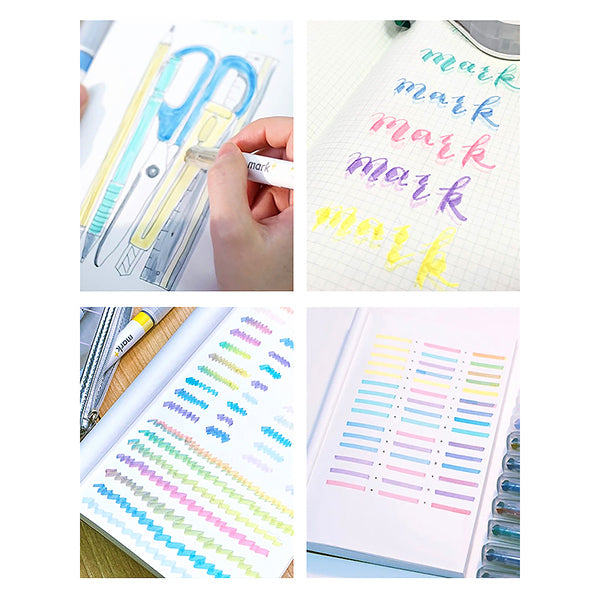 mark+
mark
mark
mark
mark
mark
mark+